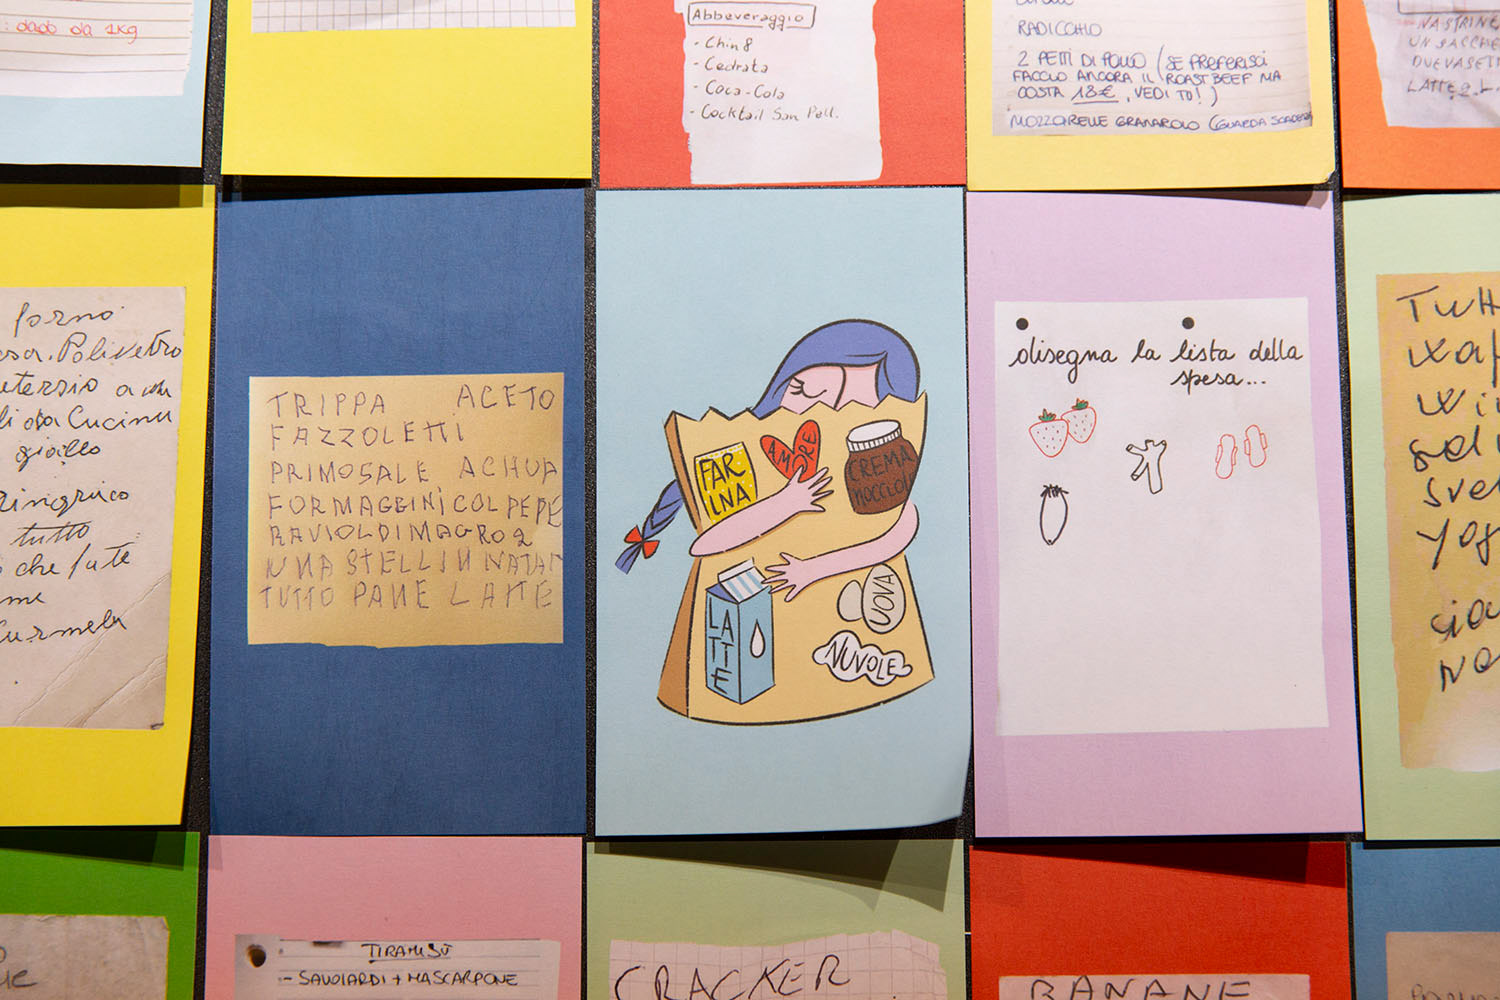 : dado da 1kg
Abbeveraggio
- Chin8
- Cedrata
- Coca-Cola
- Cocktail San Pell.
RADICCHIO
2 PETTI DI POLLO (SE PREFERISCI
FACCIO ANCORA IL ROAST BEEF MA
COSTA 18€, VEDI TU!)
MOZZARELLE GRANAROLO (GUARDA SCADENZA
UN SACCHE
LATTE 2 L.
forno
Polivetro
a
Cucina
giallo
tutto
che fate
Carmela
TRIPPA ACETO
FAZZOLETTI
PRIMOSALE ACHUA
FORMAGGINI COL PEPE
RAVIOLDIMAGRO 2
UNA STELLIN NATAT
TUTTO PANE LATTE
FAR
INA
AMORE
CREMA
NOCCIOL
LATTE
UOVA
NUVOLE
disegna la lista della
spesa...
TUTT
waf
wü
sal
sve
yog
TIRAMISÙ
- SAVOIARDI + MASCARPONE
CRACKER
BANANE